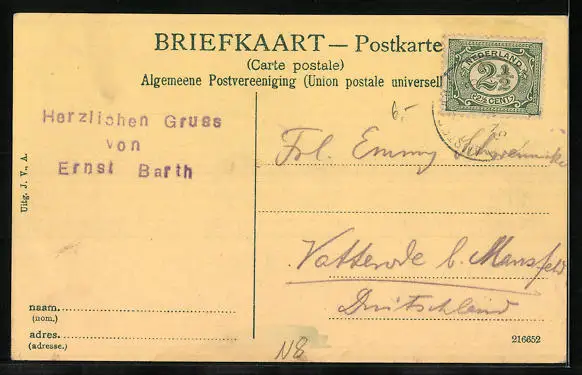 BRIEFKAART — Postkarte
(Carte postale)
Algemeene Postvereeniging (Union postale universell
NEDERLAND
2½
2½ CENT
6,-
Herzlichen Gruss
von
Ernst Barth
Frl. Emmy Schwennicke
Vatterode b. Mansfeld
Deutschland
Uitg. J. V., A.
naam.
(nom.)
adres.
(adresse.)
N8
216652